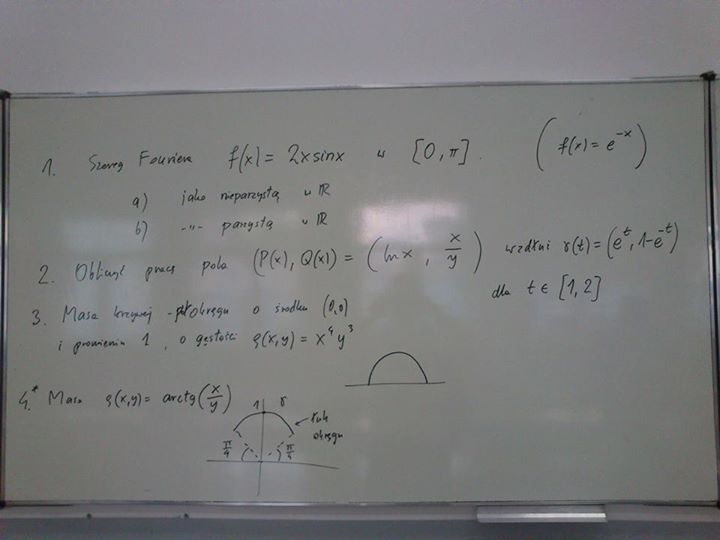 1. Szereg Fouriera f(x) = 2x sin x w [0, π]. (f(x) = e^{-x})
a) jako nieparzystą w ℝ
b) -"- parzystą w ℝ
2. Obliczyć pracę pola (P(x), Q(x)) = (ln x, x/y) wzdłuż γ(t) = (e^t, 1-e^{-t})
dla t ∈ [1, 2]
3. Masa krzywej - półokręgu o środku (0,0)
i promieniu 1, o gęstości ϱ(x,y) = x^4 y^3
4.* Masa ϱ(x,y) = arctg(x/y)
1 γ
łuk
okręgu
π/4 π/4